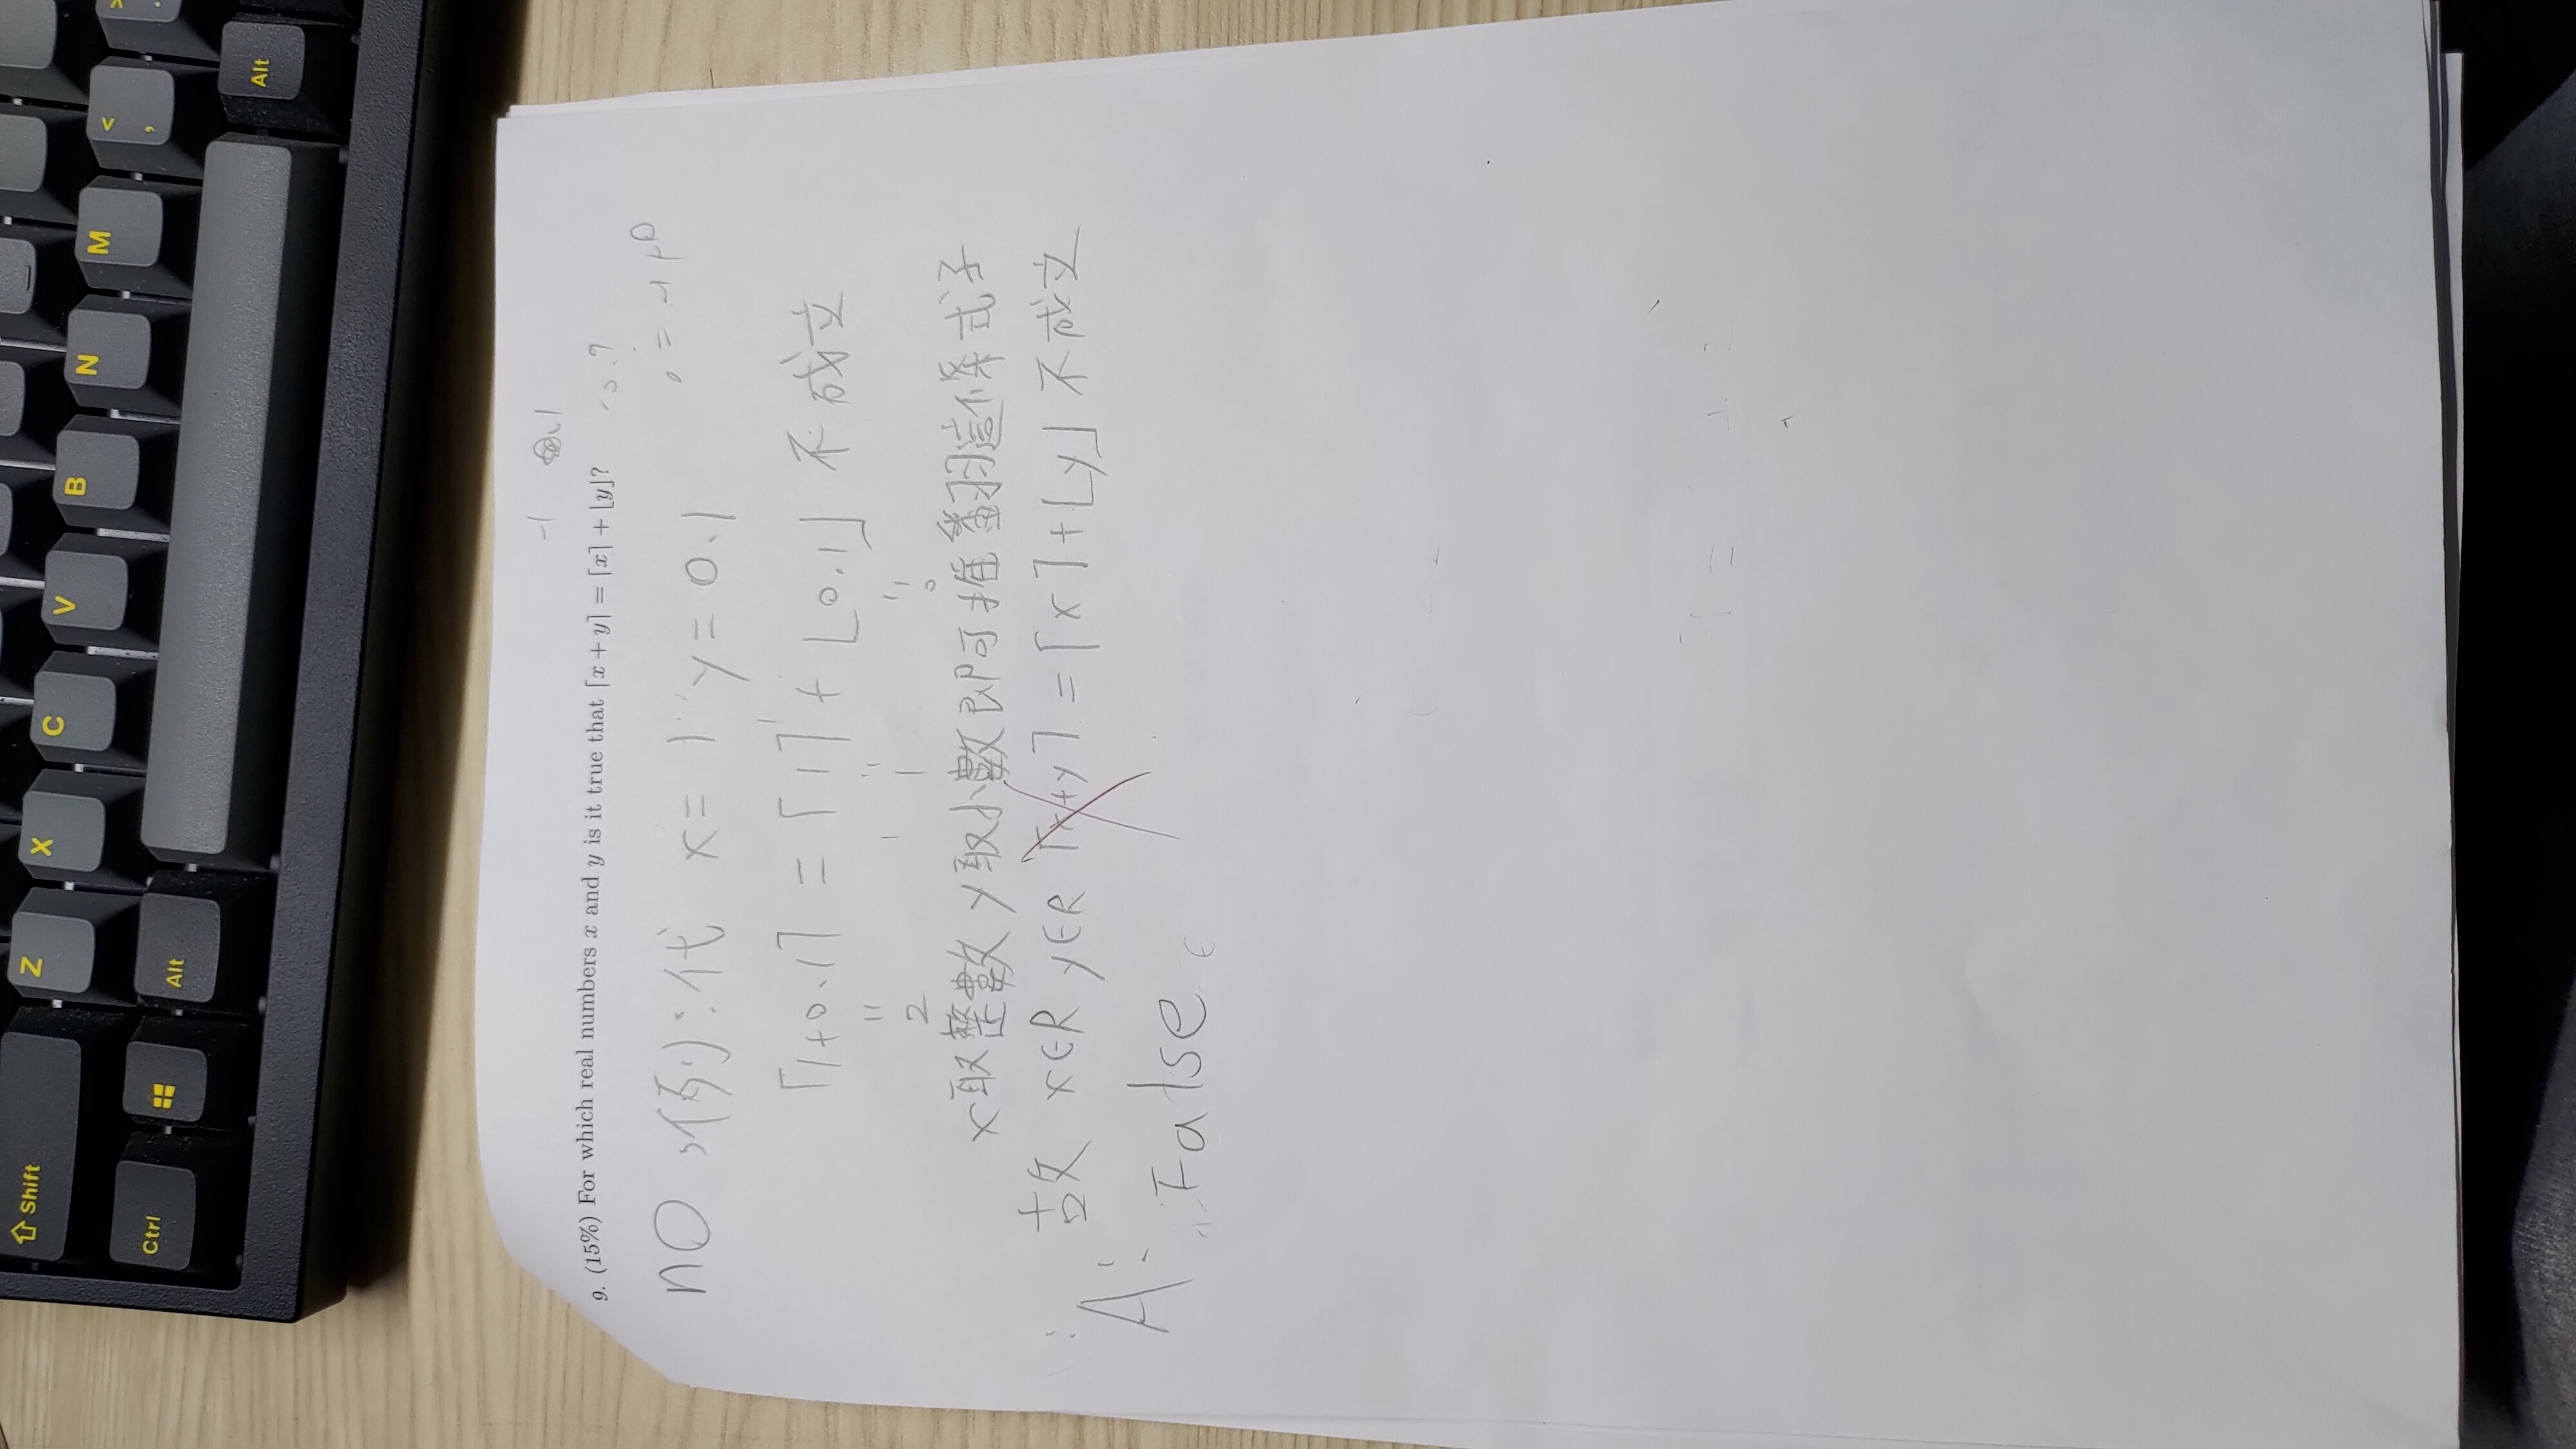 Shift Z X C V B N M < ,
Ctrl Alt Alt
-1 0.1
9. (15%) For which real numbers x and y is it true that ⌈x + y⌉ = ⌈x⌉ + ⌊y⌋?
-0.9
0 = -1 + 0
no 例:代 x = 1 y = 0.1
⌈1+0.1⌉ = ⌈1⌉ + ⌊0.1⌋ 不成立
" " "
2 1 0
x取整數 y取小數即可推翻這條式子
故 x∈R y∈R ⌈x+y⌉ = ⌈x⌉+⌊y⌋ 不成立
A: False